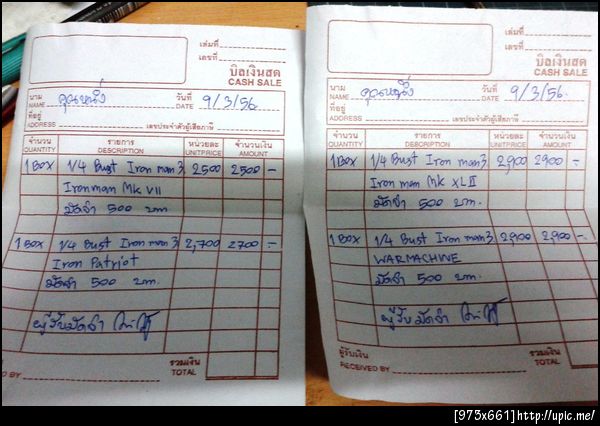 เล่มที่
เลขที่
บิลเงินสด
CASH SALE
นาม
NAME คุณหนึ่ง วันที่
DATE 9/3/56
ที่อยู่
ADDRESS เลขประจำตัวผู้เสียภาษี
จำนวน
QUANTITY รายการ
DESCRIPTION หน่วยละ
UNITPRICE จำนวนเงิน
AMOUNT
1 Box 1/4 Bust Iron man 3 2500 2500 -
Ironman Mk VII
มัดจำ 500 บาท
1 Box 1/4 Bust Iron man 3 2,700 2700 -
Iron Patriot
มัดจำ 500 บาท
ผู้รับมัดจำ
รวมเงิน
TOTAL
RECEIVED BY
เล่มที่
เลขที่
บิลเงินสด
CASH SALE
นาม
NAME คุณหนึ่ง วันที่
DATE 9/3/56
ที่อยู่
ADDRESS เลขประจำตัวผู้เสียภาษี
จำนวน
QUANTITY รายการ
DESCRIPTION หน่วยละ
UNITPRICE จำนวนเงิน
AMOUNT
1 Box 1/4 Bust Iron man 3 2,900 2900 -
Iron man Mk XLII
มัดจำ 500 บาท
1 Box 1/4 Bust Iron man 3 2,900 2,900 -
WARMACHINE
มัดจำ 500 บาท
ผู้รับมัดจำ
ผู้รับเงิน
RECEIVED BY รวมเงิน
TOTAL
[973x661]http://upic.me/